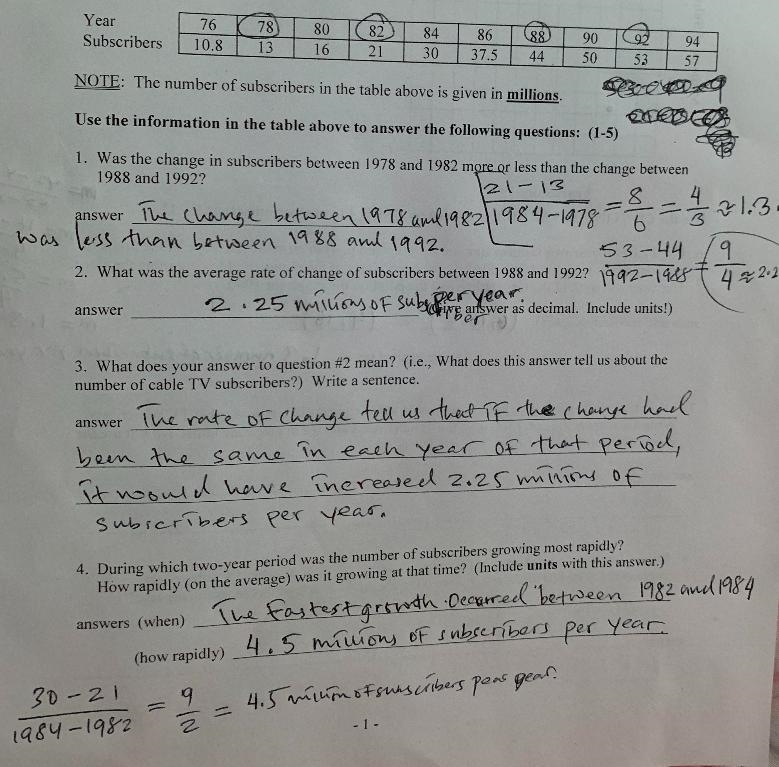 Year 76 78 80 82 84 86 88 90 92 94
Subscribers 10.8 13 16 21 30 37.5 44 50 53 57
NOTE: The number of subscribers in the table above is given in millions.
Use the information in the table above to answer the following questions: (1-5)
1. Was the change in subscribers between 1978 and 1982 more or less than the change between
1988 and 1992?
21-13
answer The change between 1978 and 1982 1984-1978 = 8/6 = 4/3 ≈ 1.3
was less than between 1988 and 1992.
53-44
2. What was the average rate of change of subscribers between 1988 and 1992? 1992-1988 = 9/4 ≈ 2.2
answer 2.25 millions of subscriber per year. (Give answer as decimal. Include units!)
3. What does your answer to question #2 mean? (i.e., What does this answer tell us about the
number of cable TV subscribers?) Write a sentence.
answer The rate of change tell us that if the change had
been the same in each year of that period,
it would have increased 2.25 millions of
subscribers per year.
4. During which two-year period was the number of subscribers growing most rapidly?
How rapidly (on the average) was it growing at that time? (Include units with this answer.)
answers (when) The fastest growth occurred between 1982 and 1984
(how rapidly) 4.5 millions of subscribers per year.
30-21
1984-1982 = 9/2 = 4.5 million of subscribers per year.
-1-